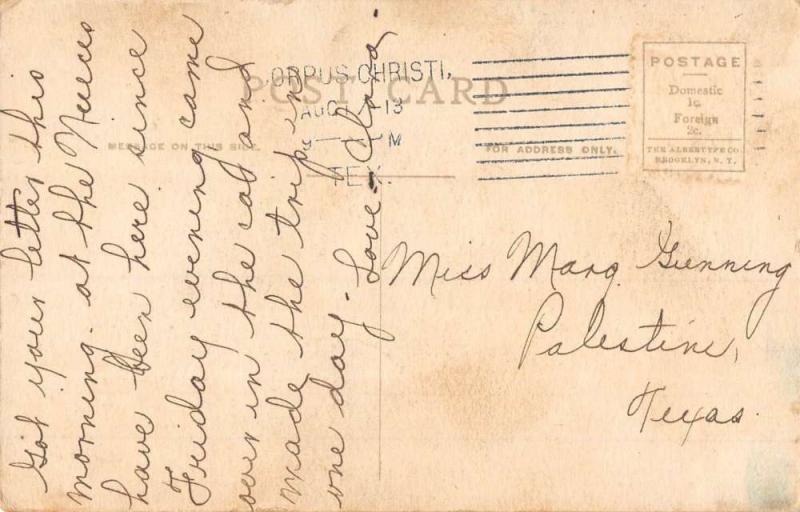 Got your letter this
morning. at the Nueces
have been here since
Friday evening came
over in the car and
made the trip in
one day. Love-Alma.
POST CARD
MESSAGE ON THIS SIDE.
FOR ADDRESS ONLY.
CORPUS CHRISTI,
AUG 13
M
TEX.
POSTAGE
Domestic
1c.
Foreign
2c.
THE ALBERTYPE CO.
BROOKLYN, N. Y.
Miss Marg. Gunning
Palestine,
Texas.